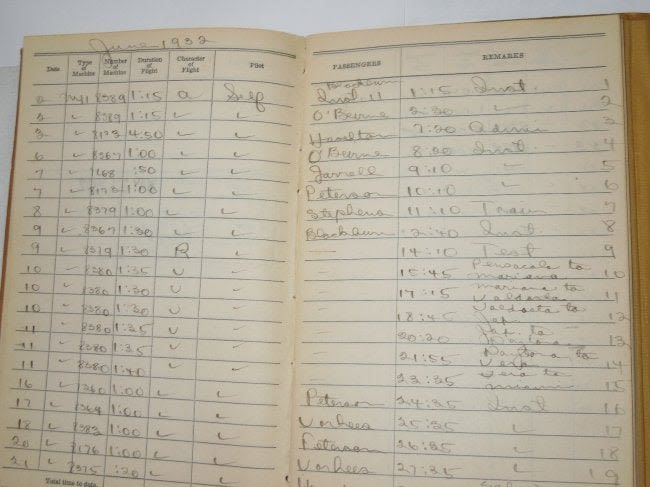 June 1932
Date Type of Machine Number of Machine Duration of Flight Character of Flight Pilot PASSENGERS REMARKS
2 NY1 8389 1:15 a Self Blackburn Inst. 11 1:15 Inst. 1
2 " 8389 1:15 " " O'Beirne 2:30 " 2
3 " 8173 4:50 " " Hamilton 7:20 Admin 3
6 " 8367 1:00 " " O'Beirne 8:20 Inst. 4
7 " :50 " " Jarrell 9:10 " 5
7 " 1:00 " " Peterson 10:10 " 6
8 " 8379 1:00 " " Stephens 11:10 Train 7
9 " 8367 1:30 " " Blackburn 12:40 Inst. 8
9 " 8379 1:30 R " — 14:10 Test 9
10 " 8380 1:35 U " — 15:45 Pensacola to Mariana 10
10 8380 1:30 U " — 17:15 Mariana to Valdosta 11
10 8380 1:30 U " — 18:45 Valdosta to Jax 12
11 " 8380 1:35 U " — 20:20 Jax to Daytona 13
11 " 8380 1:35 " " — 21:55 Daytona to Vero 14
11 " 8380 1:40 " " — 23:35 Vero to Miami 15
16 " 1:00 " " Peterson 24:35 Inst 16
17 " 1:00 " " Vorhees 25:35 " 17
18 " 8382 1:00 " " Peterson 26:35 " 18
20 " 8176 1:00 " " Vorhees 27:35 " 19
21 " 8375 :20 " "
Total time to date.